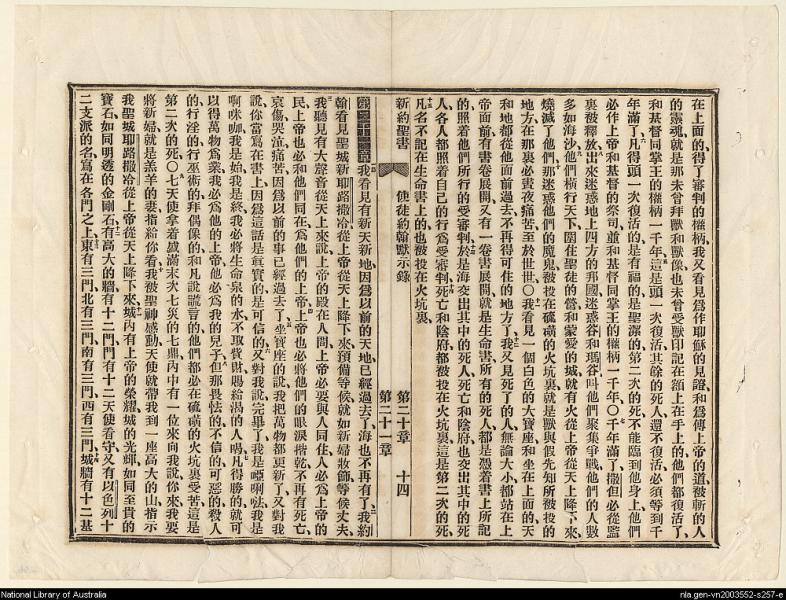 在上面的、得了審判的權柄、我又看見爲作耶穌的見證、和爲傳上帝的道被斬的人
的靈魂、就是那未曾拜獸和獸像、也未曾受獸印記在額上在手上的、他們都復活了、
和基督同掌王的權柄一千年、這是頭一次復活、其餘的死人、還不復活、必須等到千
年滿了、凡得頭一次復活的、是有福的、是聖潔的、第二次的死不能臨到他身上、他們
必作上帝和基督的祭司、並和基督同掌王的權柄一千年、○千年滿了、撒但必從監
裏被釋放、出來迷惑地上四方的邦國、迷惑谷和瑪谷、叫他們聚集爭戰、他們的人數
多如海沙、他們橫行天下、圍住聖徒的營和蒙愛的城、就有火從上帝從天上降下、來
燒滅了他們、那迷惑他們的魔鬼、被投在硫磺的火坑裏、就是獸與假先知所被投的
地方、在那裏必晝夜痛苦、至於世世、○我看見一個白色的大寶座、和坐在上面的、天
和地都從他面前過去、不再得可住的地方了、我又見死了的人、無論大小、都站在上
帝面前、有書卷展開、又有一卷書展開、就是生命書、所有的死人、都是憑着書上所記
的、照着他們所行的受審判、於是海交出其中的死人、死亡和陰府、也交出其中的死
人、各人都照着自己的行爲受審判、死亡和陰府、都被投在火坑裏、這是第二次的死、
凡名不記在生命書上的、也被投在火坑裏、
新約聖書 使徒約翰默示錄 第二十章 十四
第二十一章
我看見有新天新地、因爲以前的天地已經過去了、海也不再有了、我約
翰看見聖城新耶路撒冷、從上帝從天上降下來、預備等候、就如新婦妝飾等候丈夫、
我聽見有大聲音從天上來、說、上帝的殿在人間、上帝必要與人同住、人必爲上帝的
民、上帝也必和他們同在、爲他們的上帝、上帝也必將他們的眼淚揩乾、不再有死亡、
哀傷、哭泣、痛苦、因爲以前的事已經過去了、坐寶座的說、我把萬物都更新了、又對我
說、你當寫在書上、因爲這話是眞實的、是可信的、又對我說、完畢了、我是啞唎吠、我是
啊咪咖、我是始、我是終、我必將生命泉的水、不取費財、賜給渴的人喝、凡得勝的、就可
以得萬物爲業、我必爲他的上帝、他必爲我的兒子、但那畏怯的、不信的、可惡的、殺人
的、行淫的、行巫術的、拜偶像的、和凡說謊言的、他們都必在硫磺的火坑裏受苦、這是
第二次的死、○七天使拿着盛滿末次七災的七鼎、內中有一位來向我說、你來、我要
將新婦、就是羔羊的妻、指給你看、我被聖神感動、天使就帶我到一座高大的山、指示
我聖城耶路撒冷、從上帝從天上降下來、城內有上帝的榮耀、城的光輝、如同至貴的
寶石、如同明透的金剛石、有高大的牆、有十二門、門有十二天使看守、又有以色列十
二支派的名寫在各門之上、東有三門、北有三門、南有三門、西有三門、城牆有十二基
National Library of Australia
nla.gen-vn2003552-s257-e